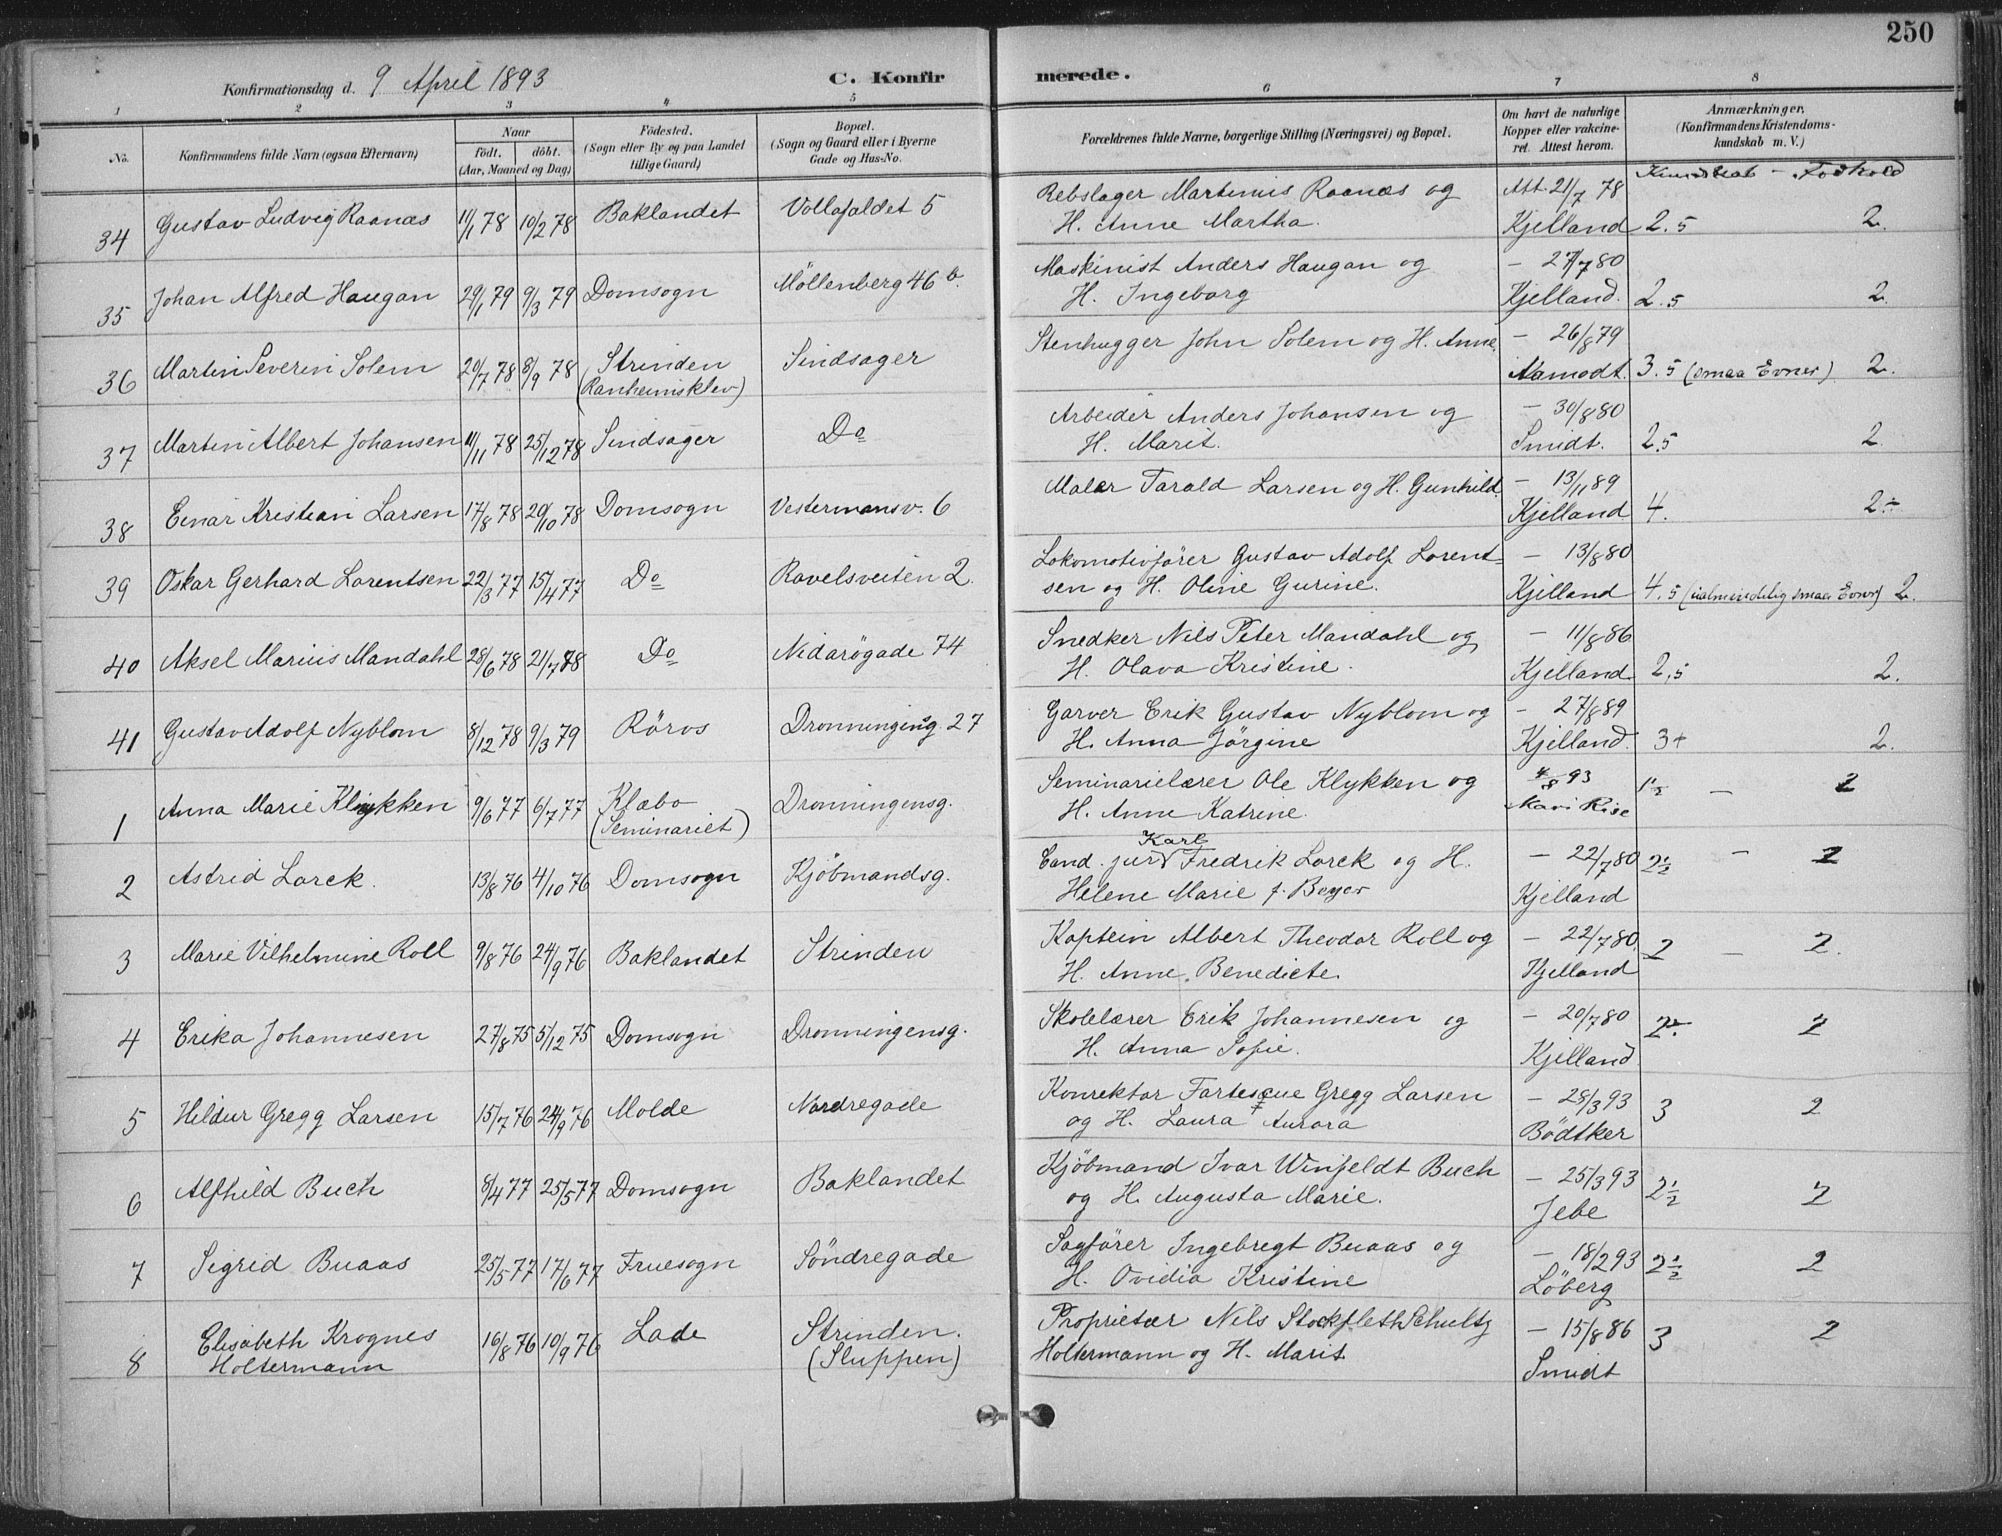 250
Konfirmationsdag d. 9 April 1893 C. Konfirmerede.
1 2 3 4 5 6 7 8
No. Konfirmandens fulde Navn (ogsaa Efternavn) Naar födt. döbt. (Aar, Maaned og Dag) Födested. (Sogn eller By og paa Landet tillige Gaard) Bopæl. (Sogn og Gaard eller i Byerne Gade og Hus-No. Forældrenes fulde Navne, borgerlige Stilling (Næringsvei) og Bopæl. Om havt de naturlige Kopper eller vakcineret. Attest herom. Anmærkninger, (Konfirmandens Kristendomskundskab m. V.)
Kundskab - Forhold
34 Gustav Ludvig Raanæs 11/1 78 10/2 78 Baklandet Vollafaldet 5 Rebslager Martinus Raanæs og Att. 21/7 78
H. Anne Martha. Kjelland 2.5 2.
35 Johan Alfred Haugan 29/1 79 9/3 79 Domsogn Möllenberg 46 b. Maskinist Anders Haugan og - 27/7 80
H. Ingeborg Kjelland. 2.5 2.
36 Martin Severin Solem 20/7 78 8/9 78 Strinden Sindsager Stenhugger John Solem og H. Anne. - 26/8 79
(Ranheimsklev) Aamodt. 3.5 (smaa Evner) 2.
37 Martin Albert Johansen 11/11 78 25/12 78 Sindsager Do Arbeider Anders Johansen og - 30/8 80
H. Marit. Smidt. 2.5 2.
38 Einar Kristian Larsen 17/8 78 20/10 78 Domsogn Vestermansv. 6 Maler Tarald Larsen og H. Gunhild. - 13/11 89
Kjelland 4. 2.÷
39 Oskar Gerhard Lorentsen 22/3 77 15/4 77 Do Ravelsveiten 2. Lokomotivförer Gustav Adolf Lorent= - 13/8 80
sen og H. Oline Gurine. Kjelland 4.5 (ualmindelig smaa Evner) 2.
40 Aksel Marius Mandahl 28/6 78 21/7 78 Do Nidarögade 74 Snedker Nils Peter Mandahl og - 11/8 86
H. Olava Kristine. Kjelland 2.5 2.
41 Gustav Adolf Nyblom 8/12 78 9/3 79 Röros Dronningensg. 27 Garver Erik Gustav Nyblom og - 27/8 89
H. Anna Jörgine Kjelland. 3+ 2.
1 Anna Marie Klykken 9/6 77 6/7 77 Klæbo Dronningensg. Seminarielærer Ole Klykken og 4/8 93 1½ - 2
(Seminariet) H. Anne Katrine. Kari Rise
2 Astrid Lorck. 13/8 76 4/10 76 Domsogn Kjöbmandsg. Cand. jur. Karl Fredrik Lorck og H. - 22/7 80 2½ - 2
Helene Marie f. Beyer Kjelland
3 Marie Vilhelmine Roll 9/8 76 24/9 76 Baklandet Strinden Kaptein Albert Theodor Roll og - 22/7 80. 2 - 2.
H. Anne Benedicte. Kjelland
4 Erika Johannesen 27/8 75 5/12 75 Domsogn Dronningensg. Skolelærer Erik Johannesen og - 20/7 80 2 2
H. Anna Sofie. Kjelland
5 Hildur Gregg Larsen 15/7 76 24/9 76 Molde Nordregade Konrektor Fartescue Gregg Larsen - 28/3 93 3 2
og H. Laura Aurora Bödtker
6 Alfhild Buch 8/4 77 25/5 77 Domsogn Baklandet Kjöbmand Ivar Winfeldt Buch - 25/3 93 2½ 2
og H. Augusta Marie. Jebe
7 Sigrid Buaas 25/5 77 17/6 77 Fruesogn Söndregade Sagförer Ingebregt Buaas og - 18/2 93 2½ 2
H. Ovidia Kristine Löberg
8 Elisabeth Krognes 16/8 76 10/9 76 Lade Strinden. Proprietær Nils Stockfleth Schultz - 15/8 86 3 2
Holtermann (Sluppen) Holtermann og H. Marit Smidt